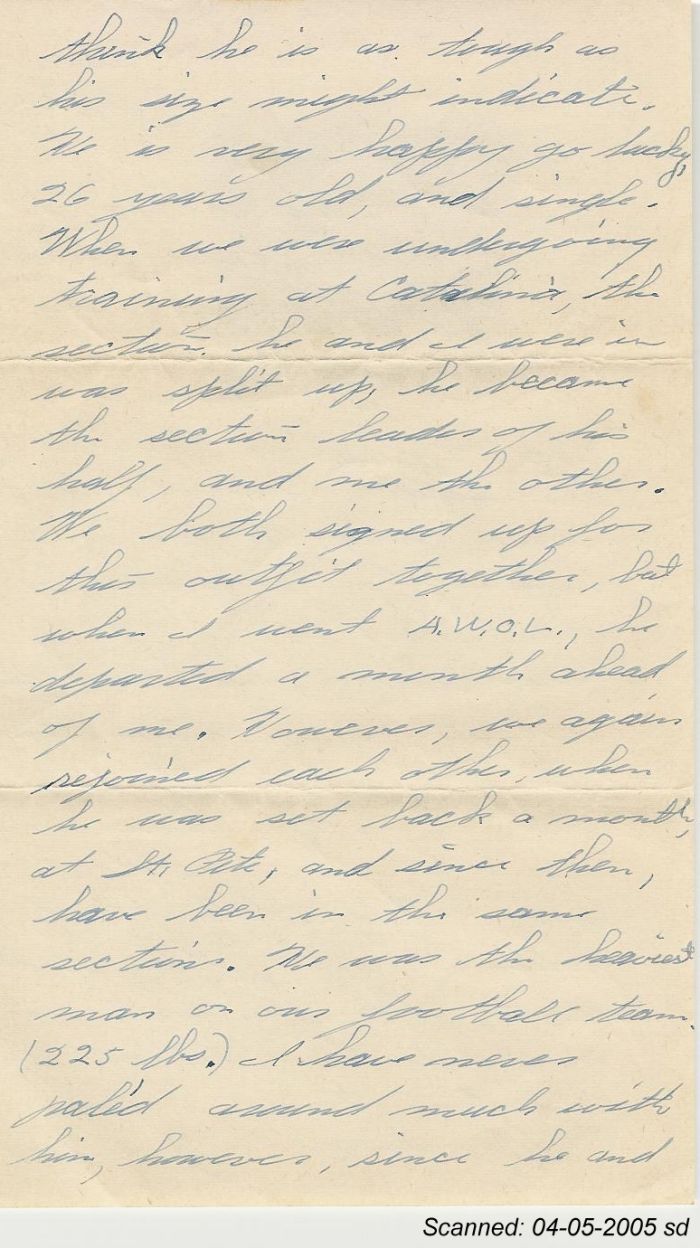 think he is as tough as
his size might indicate.
He is very happy go lucky,
26 years old, and single.
When we were undergoing
training at Catalina, the
section he and I were in
was split up, he became
the section leader of his
half, and me the other.
We both signed up for
this outfit together, but
when I went A.W.O.L., he
departed a month ahead
of me. However, we again
rejoined each other, when
he was set back a month,
at St. Pete, and since then,
have been in the same
sections. He was the heaviest
man on our football team.
(225 lbs.) I have never
paled around much with
him, however, since he and
Scanned: 04-05-2005 sd